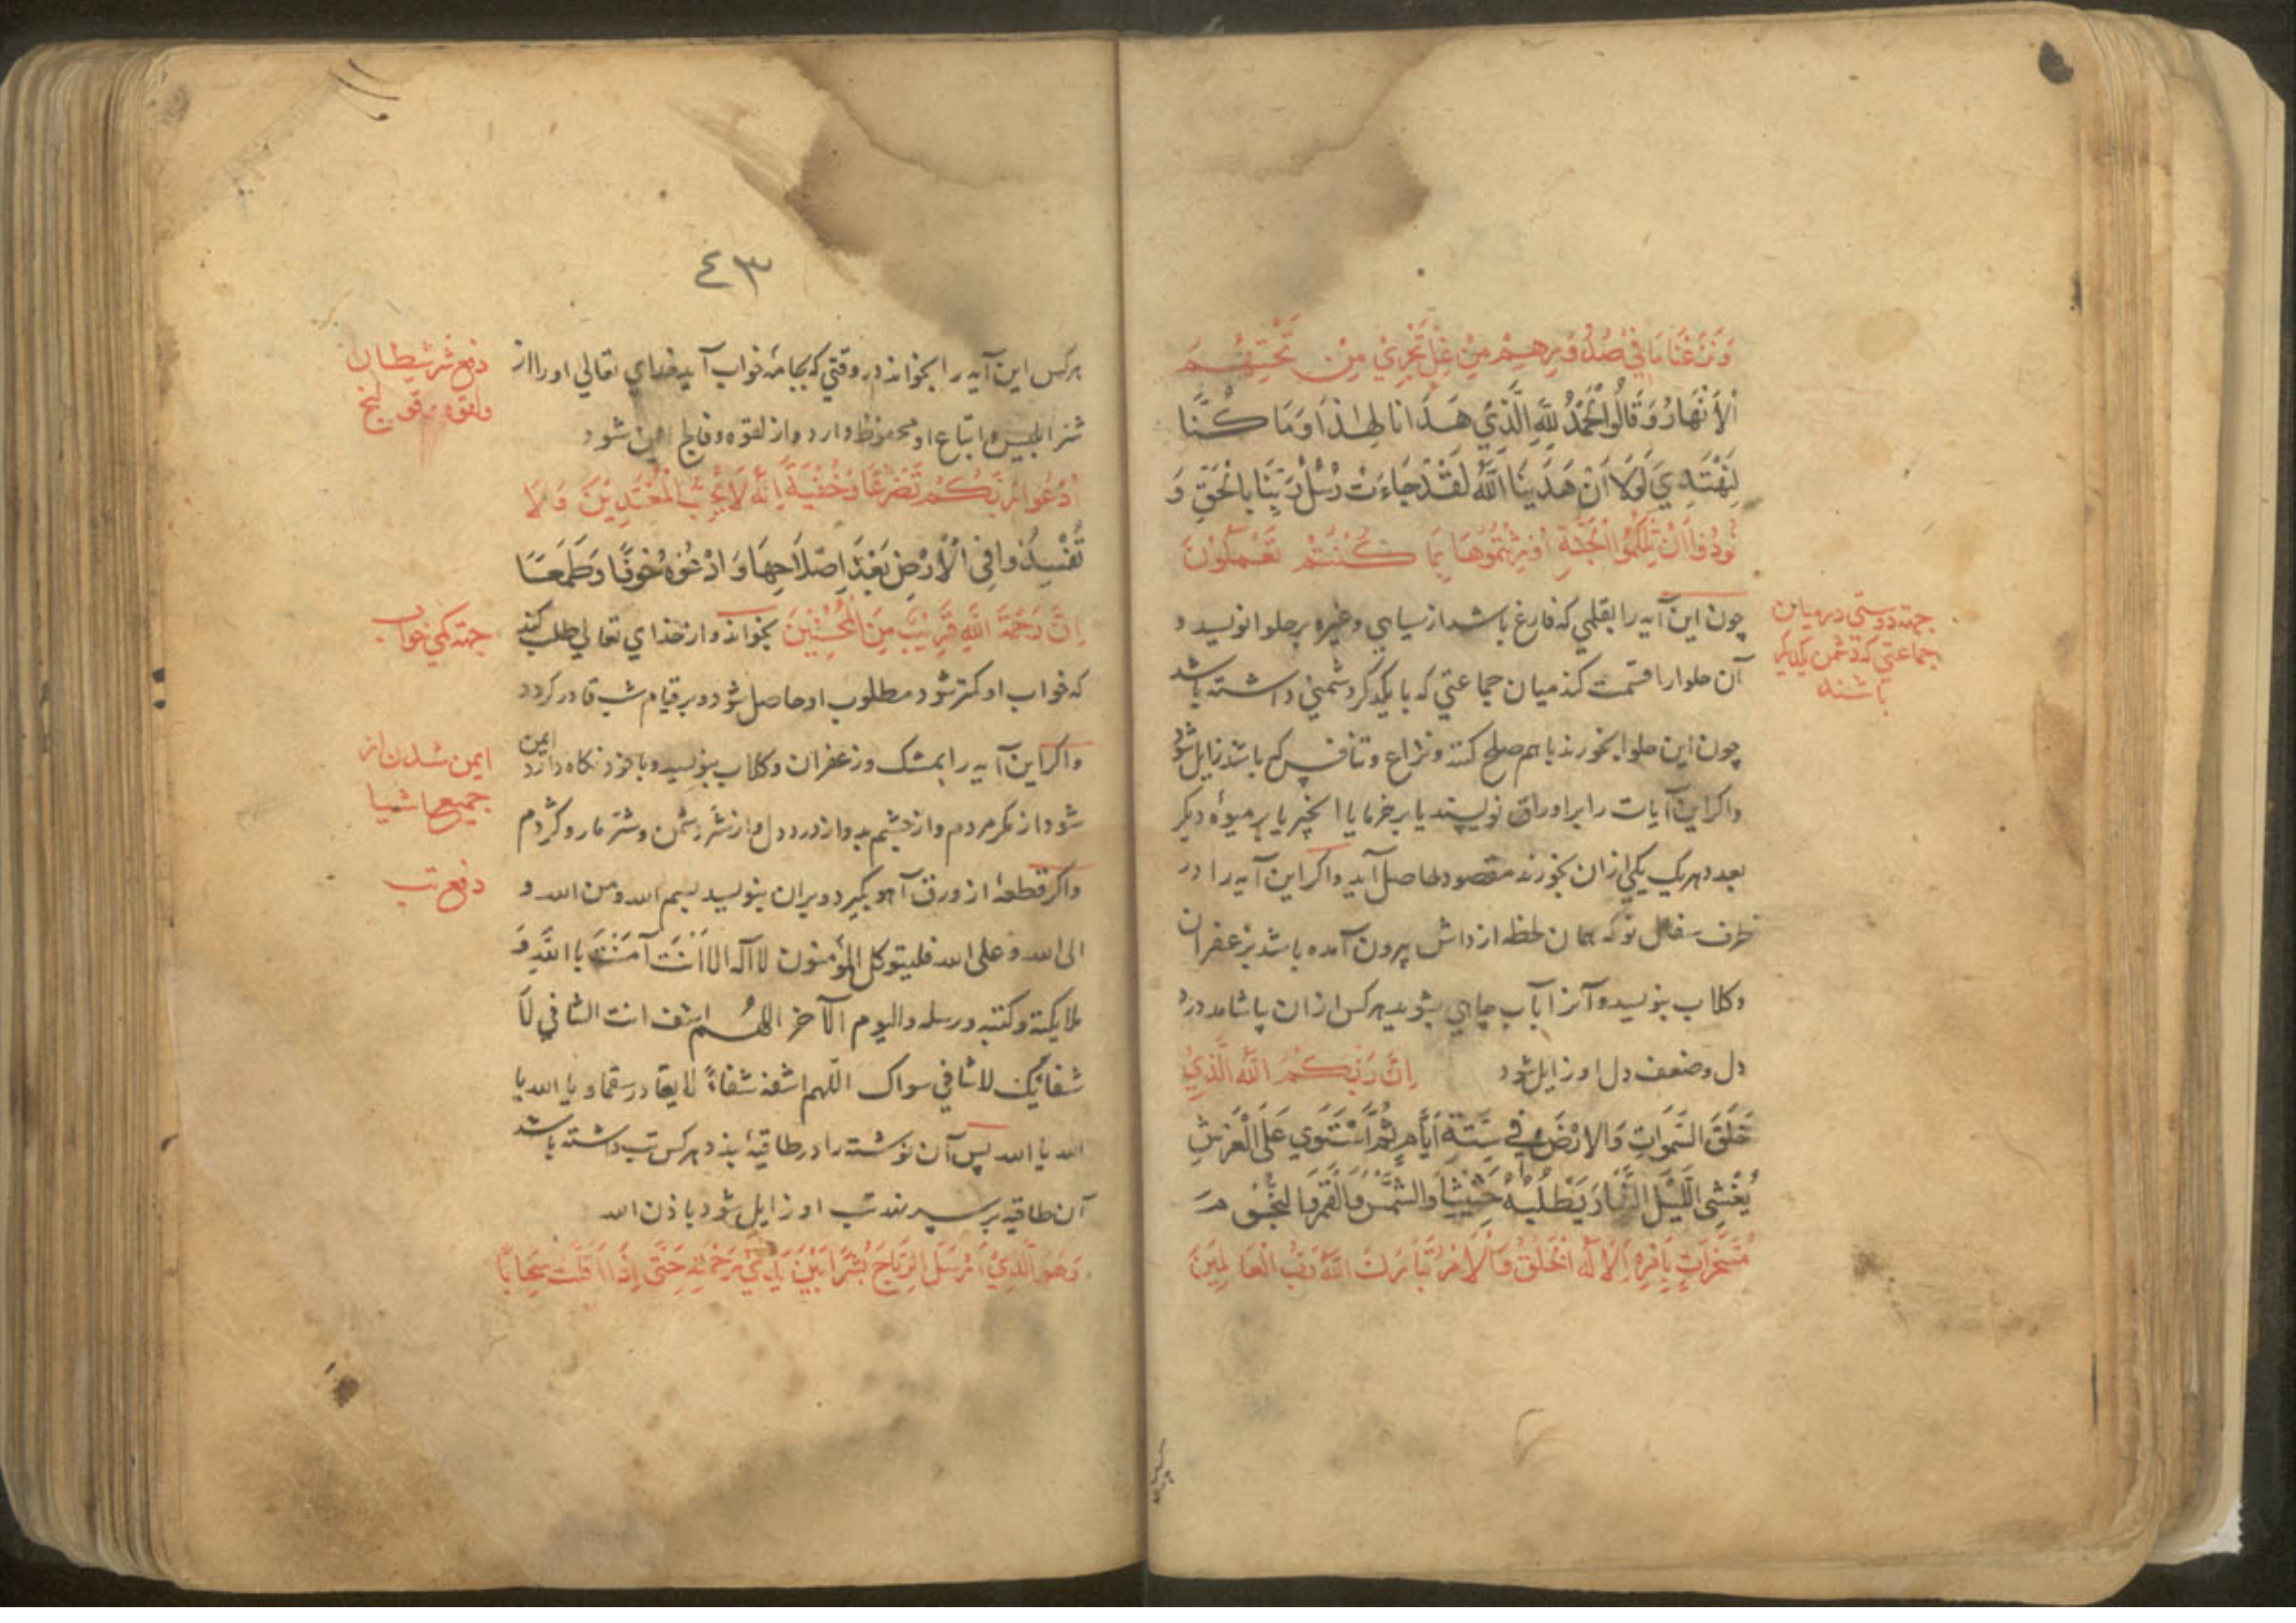 وَنَزَعْنَا مَا فِي صُدُورِهِمْ مِنْ غِلٍّ تَجْرِي مِنْ تَحْتِهِمُ
الْأَنْهَارُ وَقَالُوا الْحَمْدُ لِلَّهِ الَّذِي هَدَانَا لِهٰذَا وَمَا كُنَّا
لِنَهْتَدِيَ لَوْلَا أَنْ هَدَيٰنَا اللَّهُ لَقَدْ جَاءَتْ رُسُلُ رَبِّنَا بِالْحَقِّ وَ
نُودُوا أَنْ تِلْكُمُ الْجَنَّةِ أُورِثْتُمُوهَا بِمَا كُنْتُمْ تَعْمَلُونَ
چون این آیه را بقلمی که فارغ باشد از سیاهی وغیره بر حلوا نویسد و
جهته دوستی در میان
جماعتی که دشمن یکدیکر
باشند
آن حلوا را قسمت کند میان جماعتی که با یکدکر دشمنی داشته باشد
چون این حلوا بخورند با هم صلح کنند ونزاع وتنافس که باشد زایل شود
واکر این آیات را بر اوراق نویسند یا بر خرما یا انجیر یا بر میوهٔ دیکر
بعده هر یک یکی ازان بخورند مقصودها حاصل آید واکر این آیه را در
ظرف سفال نو که همان لحظه از داش بیرون آمده باشد بزعفران
وکلاب بنویسد وآنرا بآب چاهی بشوید هر کس ازان بیاشامد درد
دل وضعف دل او زایل شود اِنَّ رَبَّكُمَ اللَّهُ الَّذِي
خَلَقَ السَّمٰوَاتِ وَالْارْضَ فِي سِتَّةِ أَيَّامٍ ثُمَّ اسْتَوٰي عَلَى الْعَرْشِ
يُغْشِي اللَّيْلَ النَّهَارَ يَطْلُبُهُ حَثِيثًا وَالشَّمْسَ وَالْقَمَرَ وَالنُّجُومَ
مُسَخَّرَاتٍ بِأَمْرِهِ اَلَا لَهُ الْخَلْقُ وَالْاَمْرُ تَبَارَكَ اللَّهُ رَبُّ الْعَالَمِينَ
هر کس
٤٣
هر کس این آیه را بخواند در وقتی که بجامهٔ خواب آید خدای تعالی او را از
دفع شر شیطان
ولقوه وقولنج
شر ابلیس و اتباع او محفوظ دارد واز لقوه وفالج ایمن شود
اُدْعُوا رَبَّكُمْ تَضَرُّعًا وَخُفْيَةً اِنَّهُ لَا يُحِبُّ الْمُعْتَدِينَ وَلَا
تُفْسِدُوا فِي الْأَرْضِ بَعْدَ اِصْلَاحِهَا وَادْعُوهُ خَوْفًا وَطَمَعًا
اِنَّ رَحْمَةَ اللَّهِ قَرِيبٌ مِنَ الْمُحْسِنِينَ بخواند واز خدای تعالی طلب کند
جهته کمی خواب
که خواب او کمتر شود مطلوب او حاصل شود وبر قیام شب قادر کردد
واکر این آیه را بمشک وزعفران وکلاب بنویسد وبا خود نکاه دارد ایمن
ایمن شدن از
جمیع اشیا
شود از مکر مردم واز چشم بد واز درد دل واز شر دشمن وشر مار وکژدم
واکر قطعهٔ از ورق آهو بکیرد وبران بنویسد بسم الله ومن الله و
دفع تب
الی الله وعلی الله فلیتوکل المؤمنون لا اله الا اَنْتَ آمَنْتُ باللّهِ وَ
ملایکته وکتبه ورسله والیوم الآخر اللهم اشف انت الشافی لَا
شفائک لا شافی سواک اللّهم اشفه شفاءً لا یغادر سقما ویا الله یا
الله یا الله پس آن نوشته را در طاقیه بدوزد هر کس تب داشته باشد
آن طاقیه بر سر نهد تب او زایل شود باذن الله
وَهُوَ الَّذِي اَرْسَلَ الرِّيَاحَ بُشْرًا بَيْنَ يَدَيْ رَحْمَتِهِ حَتَّى إِذَا اَقَلَّتْ سَحَابًا